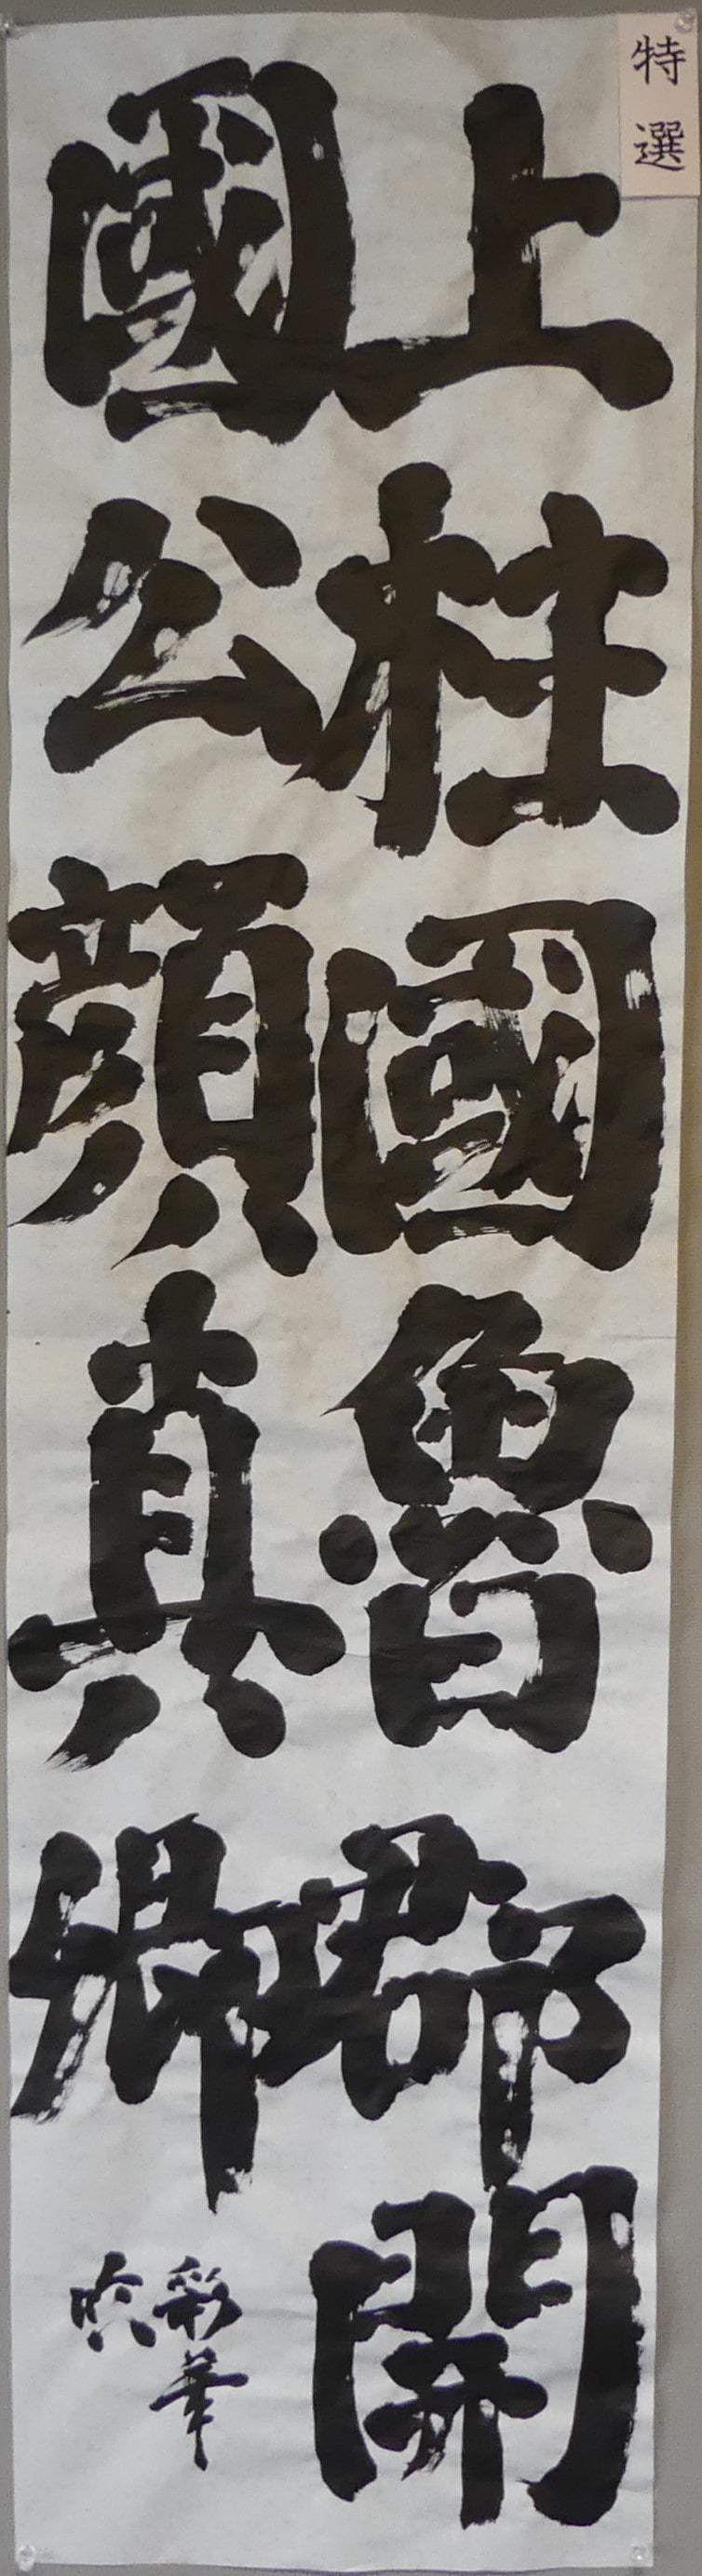 特選
上柱國魯郡開
國公顔真卿
彩華